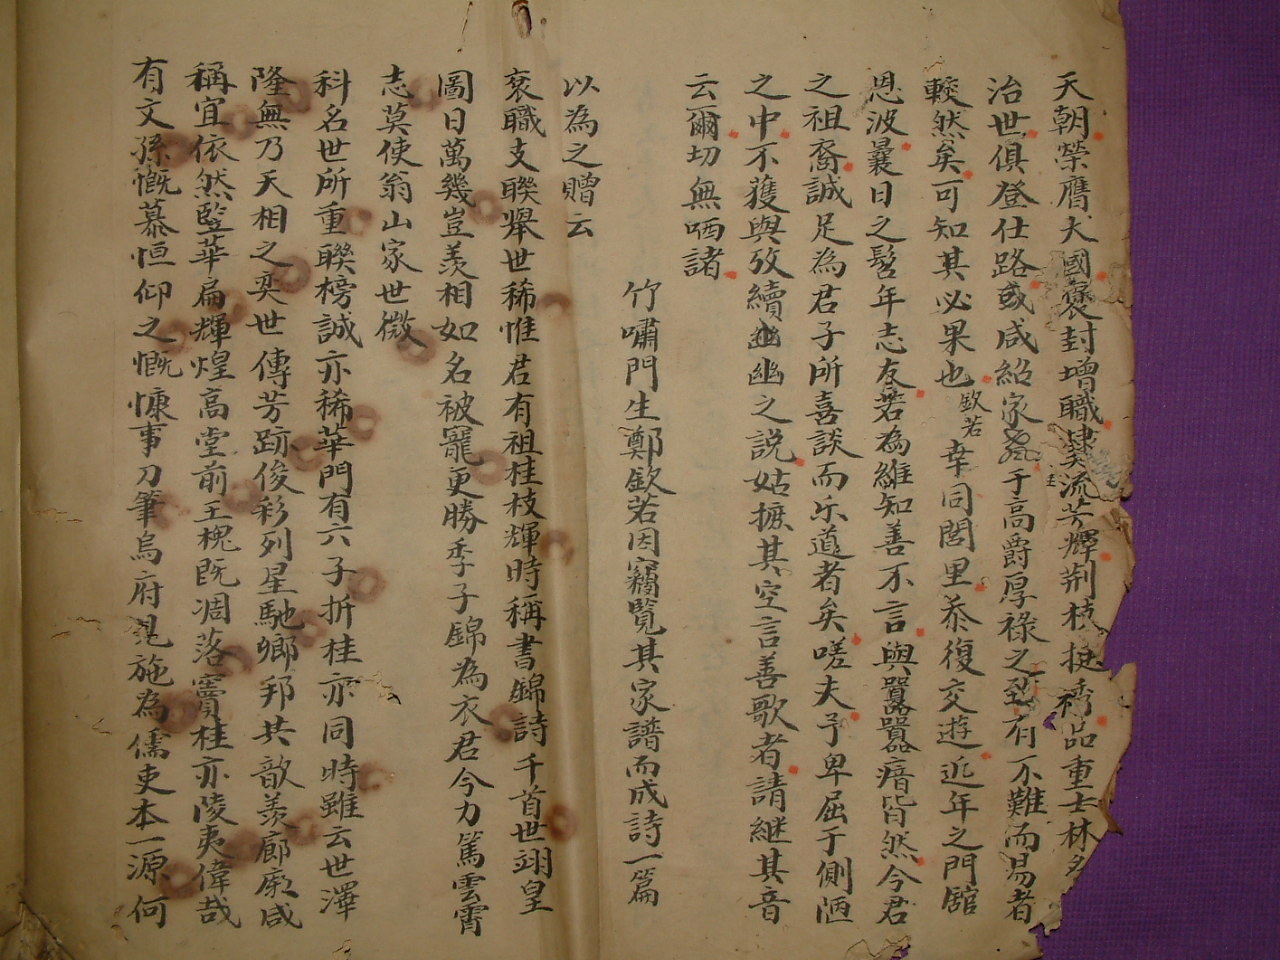 天朝榮膺大國褒封增職 流芳輝荊枝挺秀品重士林名
治世俱登仕路或咸紹家 于高爵厚祿之 有不難而易者
較然矣可知其必果也欽若幸同閭里恭復交遊近年之門舘
恩波曩日之髫年志友若為維知善不言與囂囂瘖皆然今君
之祖裔誠足為君子所喜談而乐道者矣嗟夫予卑屈于側陋
之中不獲與攷續幽幽之說姑摭其空言善歌者請継其音
云爾切無哂諸
竹嘯門生鄭欽若因竊覽其家譜而成詩一篇
以為之贈云
衮職支聯舉世稀惟君有祖桂枝輝時稱書錦詩千首世翊皇
圖日萬幾豈羨相如名被寵更勝季子錦為衣君今力篤雲霄
志莫使翁山家世微
科名世所重聯榜誠亦稀華門有六子折桂亦同時雖云世澤
隆無乃天相之奕世傳芳跡俊彩列星馳鄉邦共歆羨廊廟咸
稱宜依然豎華扁輝煌高堂前王槐既凋落竇桂亦陵夷偉哉
有文孫慨慕恒仰之慨慷事刀筆烏府見施為儒吏本一源何